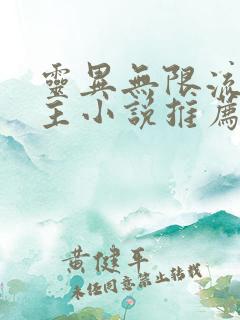 靈異無限流
主小說推薦
黃健平
未經同意禁止轉載